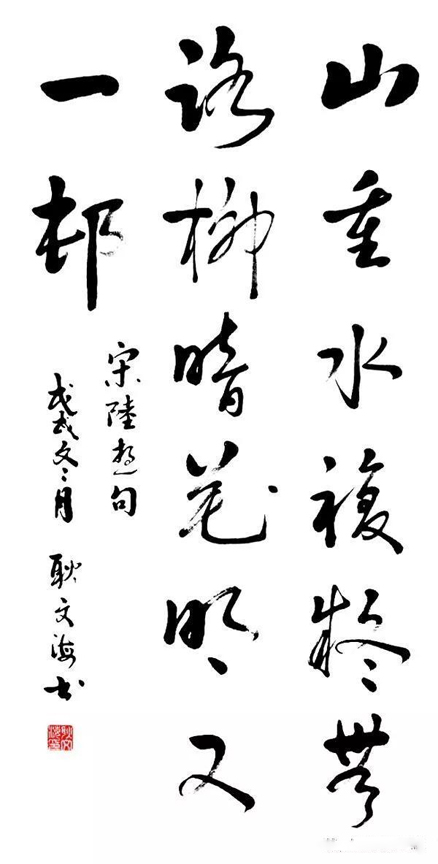 山重水複疑無
路柳暗花明又
一邨
宋陸游句
戊戌冬月 耿文海书